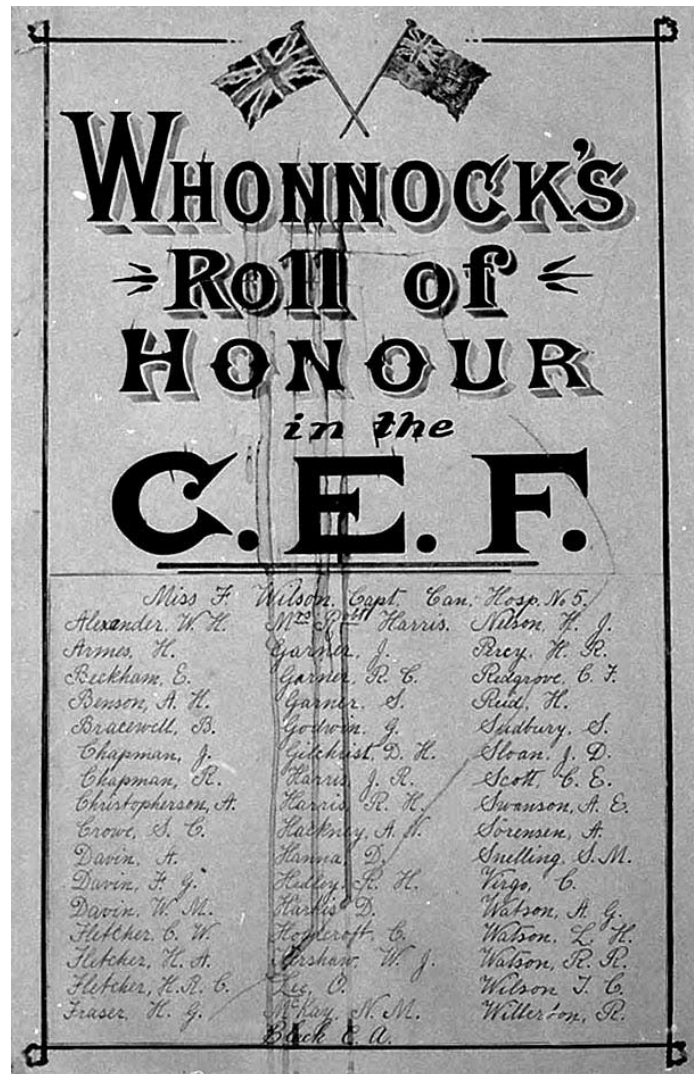 WHONNOCK'S
Roll of
HONOUR
in the
C.E.F.
Miss F. Wilson, Capt. Can. Hosp. No 5.
Alexander, W. H.
Armes, H.
Beckham, E.
Benson, A. H.
Bracewell, B.
Chapman, J.
Chapman, R.
Christopherson, A.
Crowe, S. C.
Davin, A.
Davin, F. G.
Davin, W. M.
Fletcher, C. W.
Fletcher, H. A.
Fletcher, H. R. C.
Fraser, H. G.
Mrs Robt Harris.
Garner, J.
Garner, R. C.
Garner, S.
Godwin, G.
Gilchrist, D. H.
Harris, J. R.
Harris, R. H.
Hackney, A. W.
Hanna, D.
Hedley, R. H.
Harris D.
C.
Kershaw, W. J.
Lee, O.
McKay, N. M.
Black E. A.
Nelson, H. J.
Percy, H. R.
Redgrove, C. F.
Reid, H.
Sudbury, S.
Sloan, J. D.
Scott, C. E.
Swanson, A. E.
Sorensen, A.
Snelling, S. M.
Virgo, C.
Watson, A. G.
Watson, L. H.
Watson, R. R.
Wilson T. C.
R.